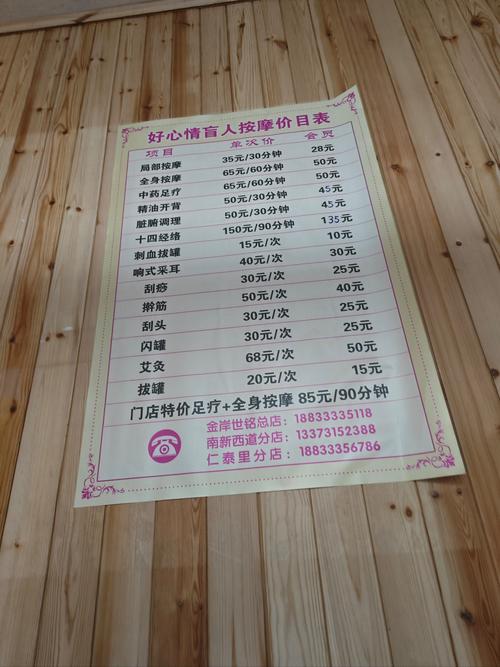 好心情盲人按摩价目表
项目 单次价 会员
局部按摩 35元/30分钟 28元
全身按摩 65元/60分钟 50元
中药足疗 65元/60分钟 50元
精油开背 50元/30分钟 45元
脏腑调理 50元/30分钟 45元
十四经络 150元/90分钟 135元
刺血拔罐 15元/次 10元
响式采耳 40元/次 30元
刮痧 30元/次 25元
擀筋 50元/次 40元
刮头 30元/次 25元
闪罐 30元/次 25元
艾灸 68元/次 50元
拔罐 20元/次 15元
门店特价足疗+全身按摩 85元/90分钟
金岸世铭总店：18833335118
南新西道分店：13373152388
仁泰里分店：18833356786